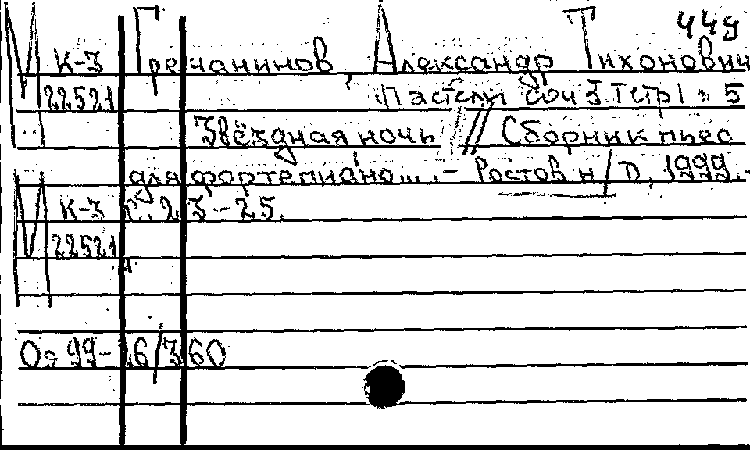 449
М К-3 Гречанинов, Александр Тихонович
22521 Пастели соч 3 Тетр 1 № 5
Звёздная ночь // Сборник пьес
для фортепиано... - Ростов н/Д, 1999.-
М К-3 С. 23-25.
22521
Оэ 99-16/360